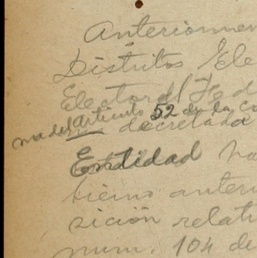 Anteriormen
Distritos Ele
Electoral Fed
ma del artículo 52 de la Co
decretada
Entidad ha
bierno anteri
sición relati
num. 104 de